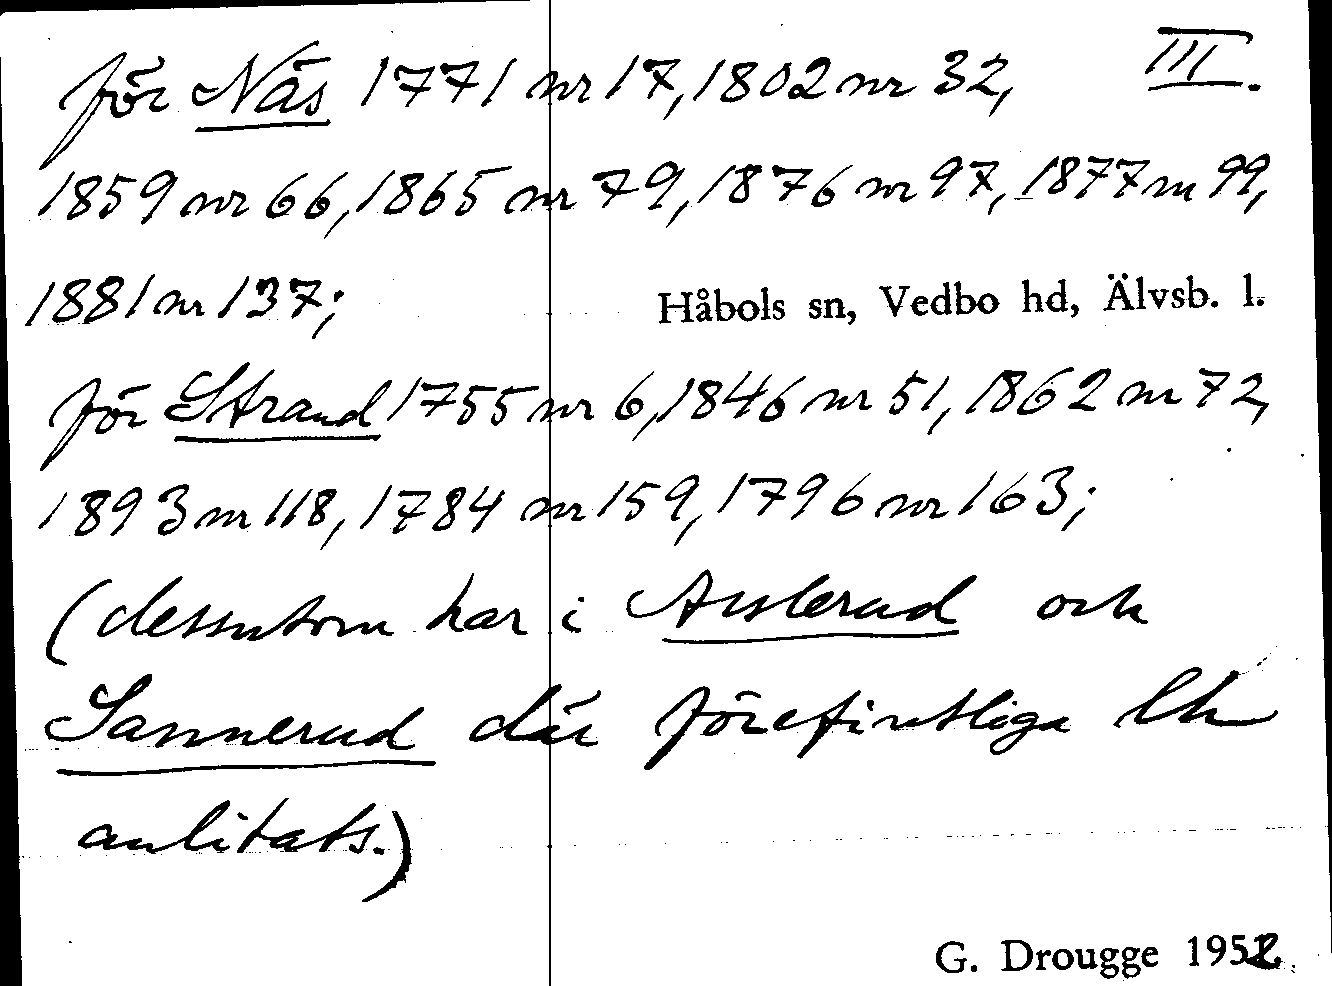 III.
för Näs 1771 nr 17, 1802 nr 32,
1859 nr 66, 1865 nr 79, 1876 nr 97, 1877 nr 99,
1881 nr 137;
Håbols sn, Vedbo hd, Älvsb. l.
för Strand 1755 nr 6, 1846 nr 51, 1862 nr 72,
1893 nr 118, 1784 nr 159, 1796 nr 163;
(dessutom har i Austerud och
Sannerud där förefintliga lh
anlitats.)
G. Drougge 1952